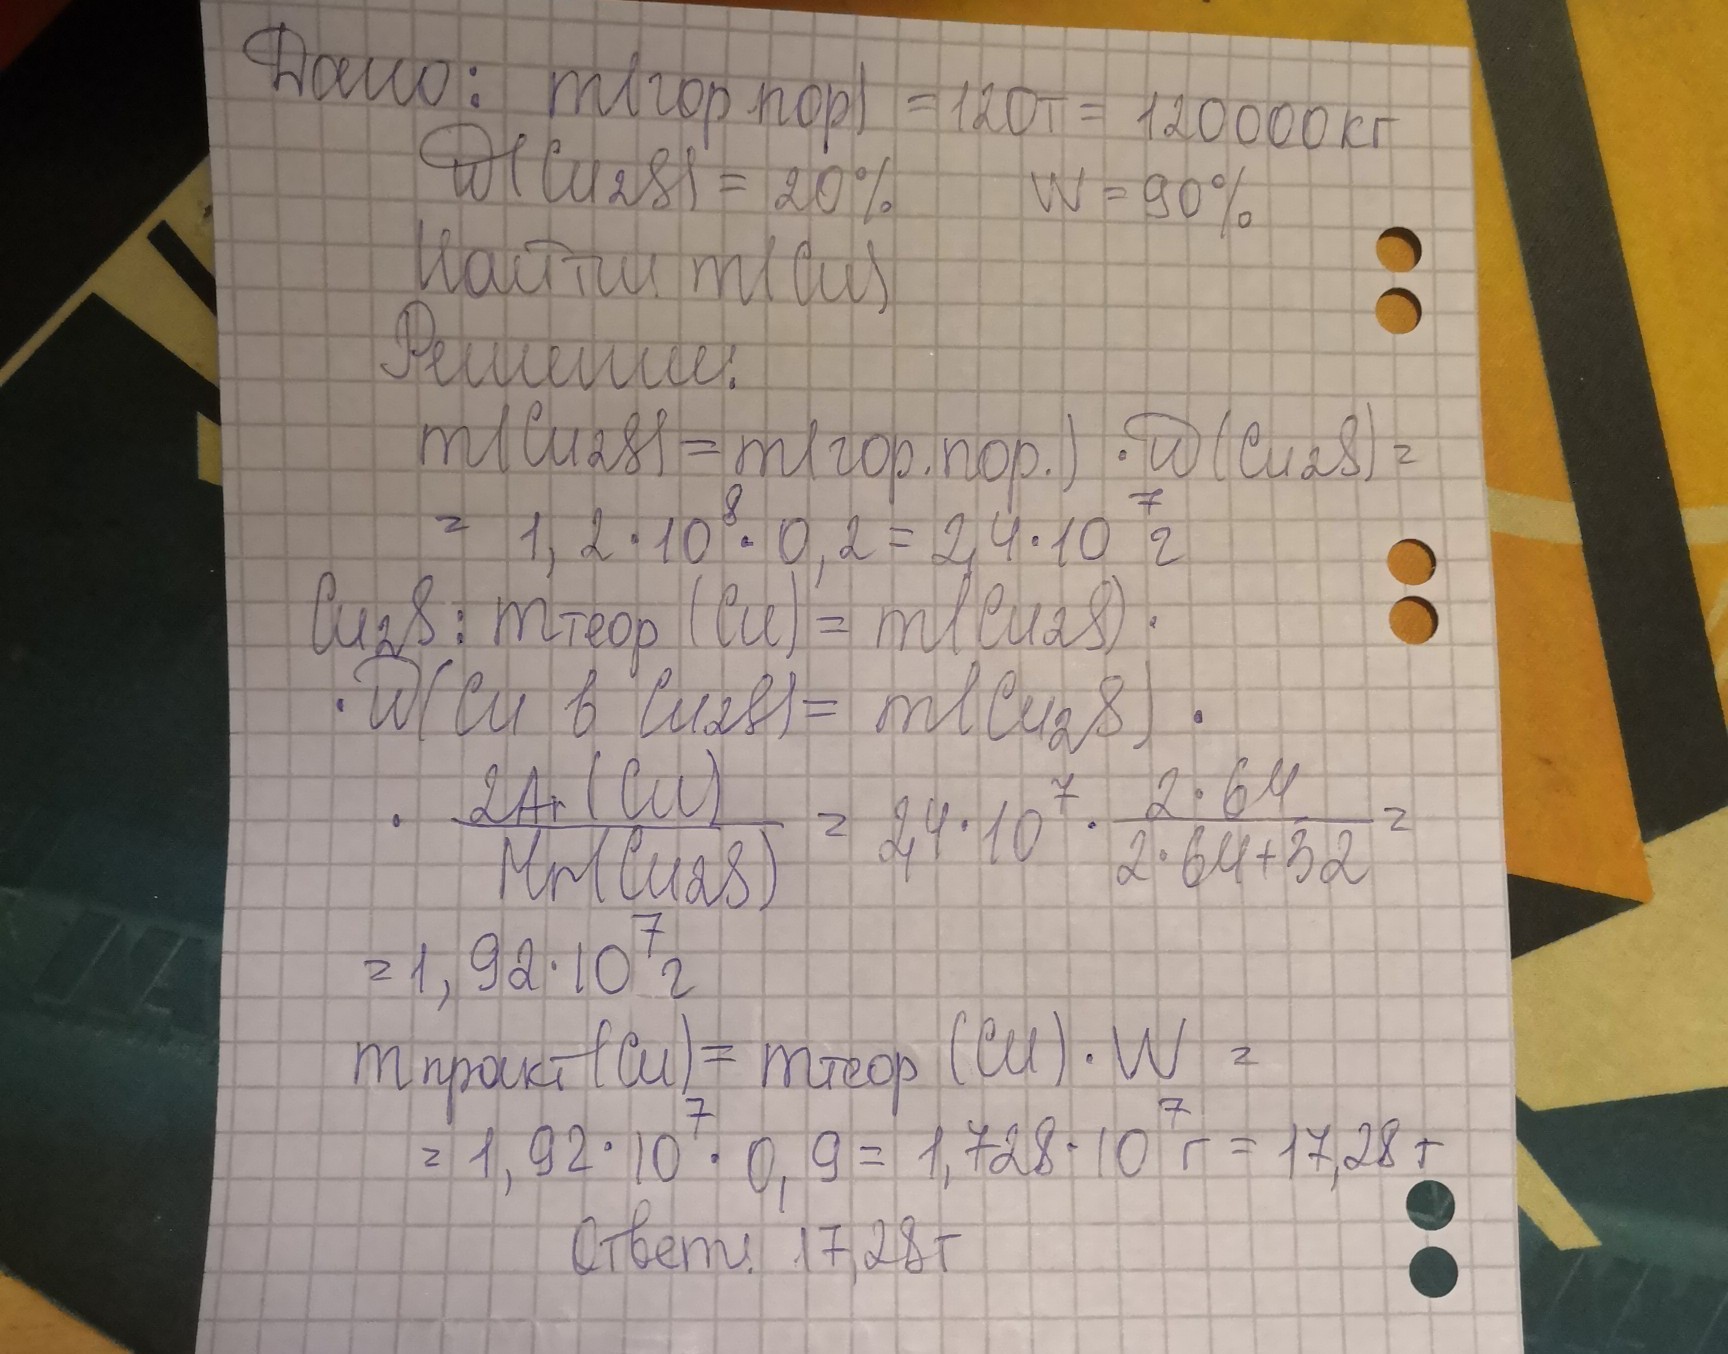 Дано: m(гор.пор) = 120т = 120000кг
W(Cu2S) = 20% W = 90%
Найти m(Cu)
Решение:
m(Cu2S) = m(гор.пор.) · W(Cu2S) =
= 1,2·10⁸ · 0,2 = 2,4·10⁷ г
Cu2S: mтеор (Cu) = m(Cu2S) ·
· W(Cu в Cu2S) = m(Cu2S) ·
· 2Ar(Cu) / Mr(Cu2S) = 2,4·10⁷ · 2·64 / 2·64+32 =
= 1,92·10⁷ г
mпракт(Cu) = mтеор (Cu) · W =
= 1,92·10⁷ · 0,9 = 1,728·10⁷ г = 17,28 т
Ответ: 17,28т